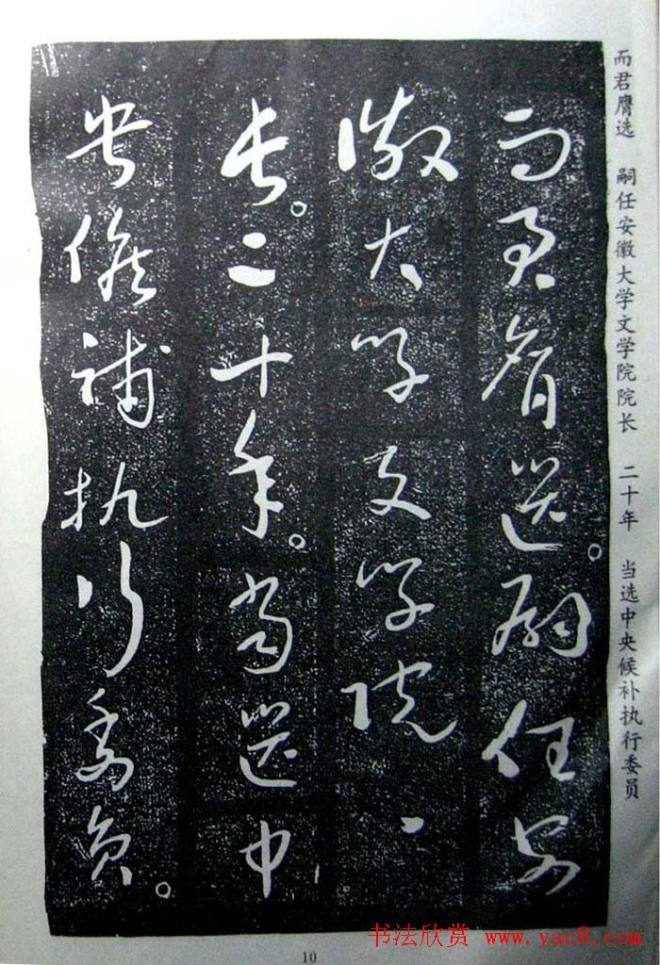 而君膺选 嗣任安徽大学文学院院长 二十年 当选中央候补执行委员
而君膺選。嗣任安
徽大學文學院〻
長。二十年。當選中
央候補執行委員。
10
书法欣赏 www.yac8.com